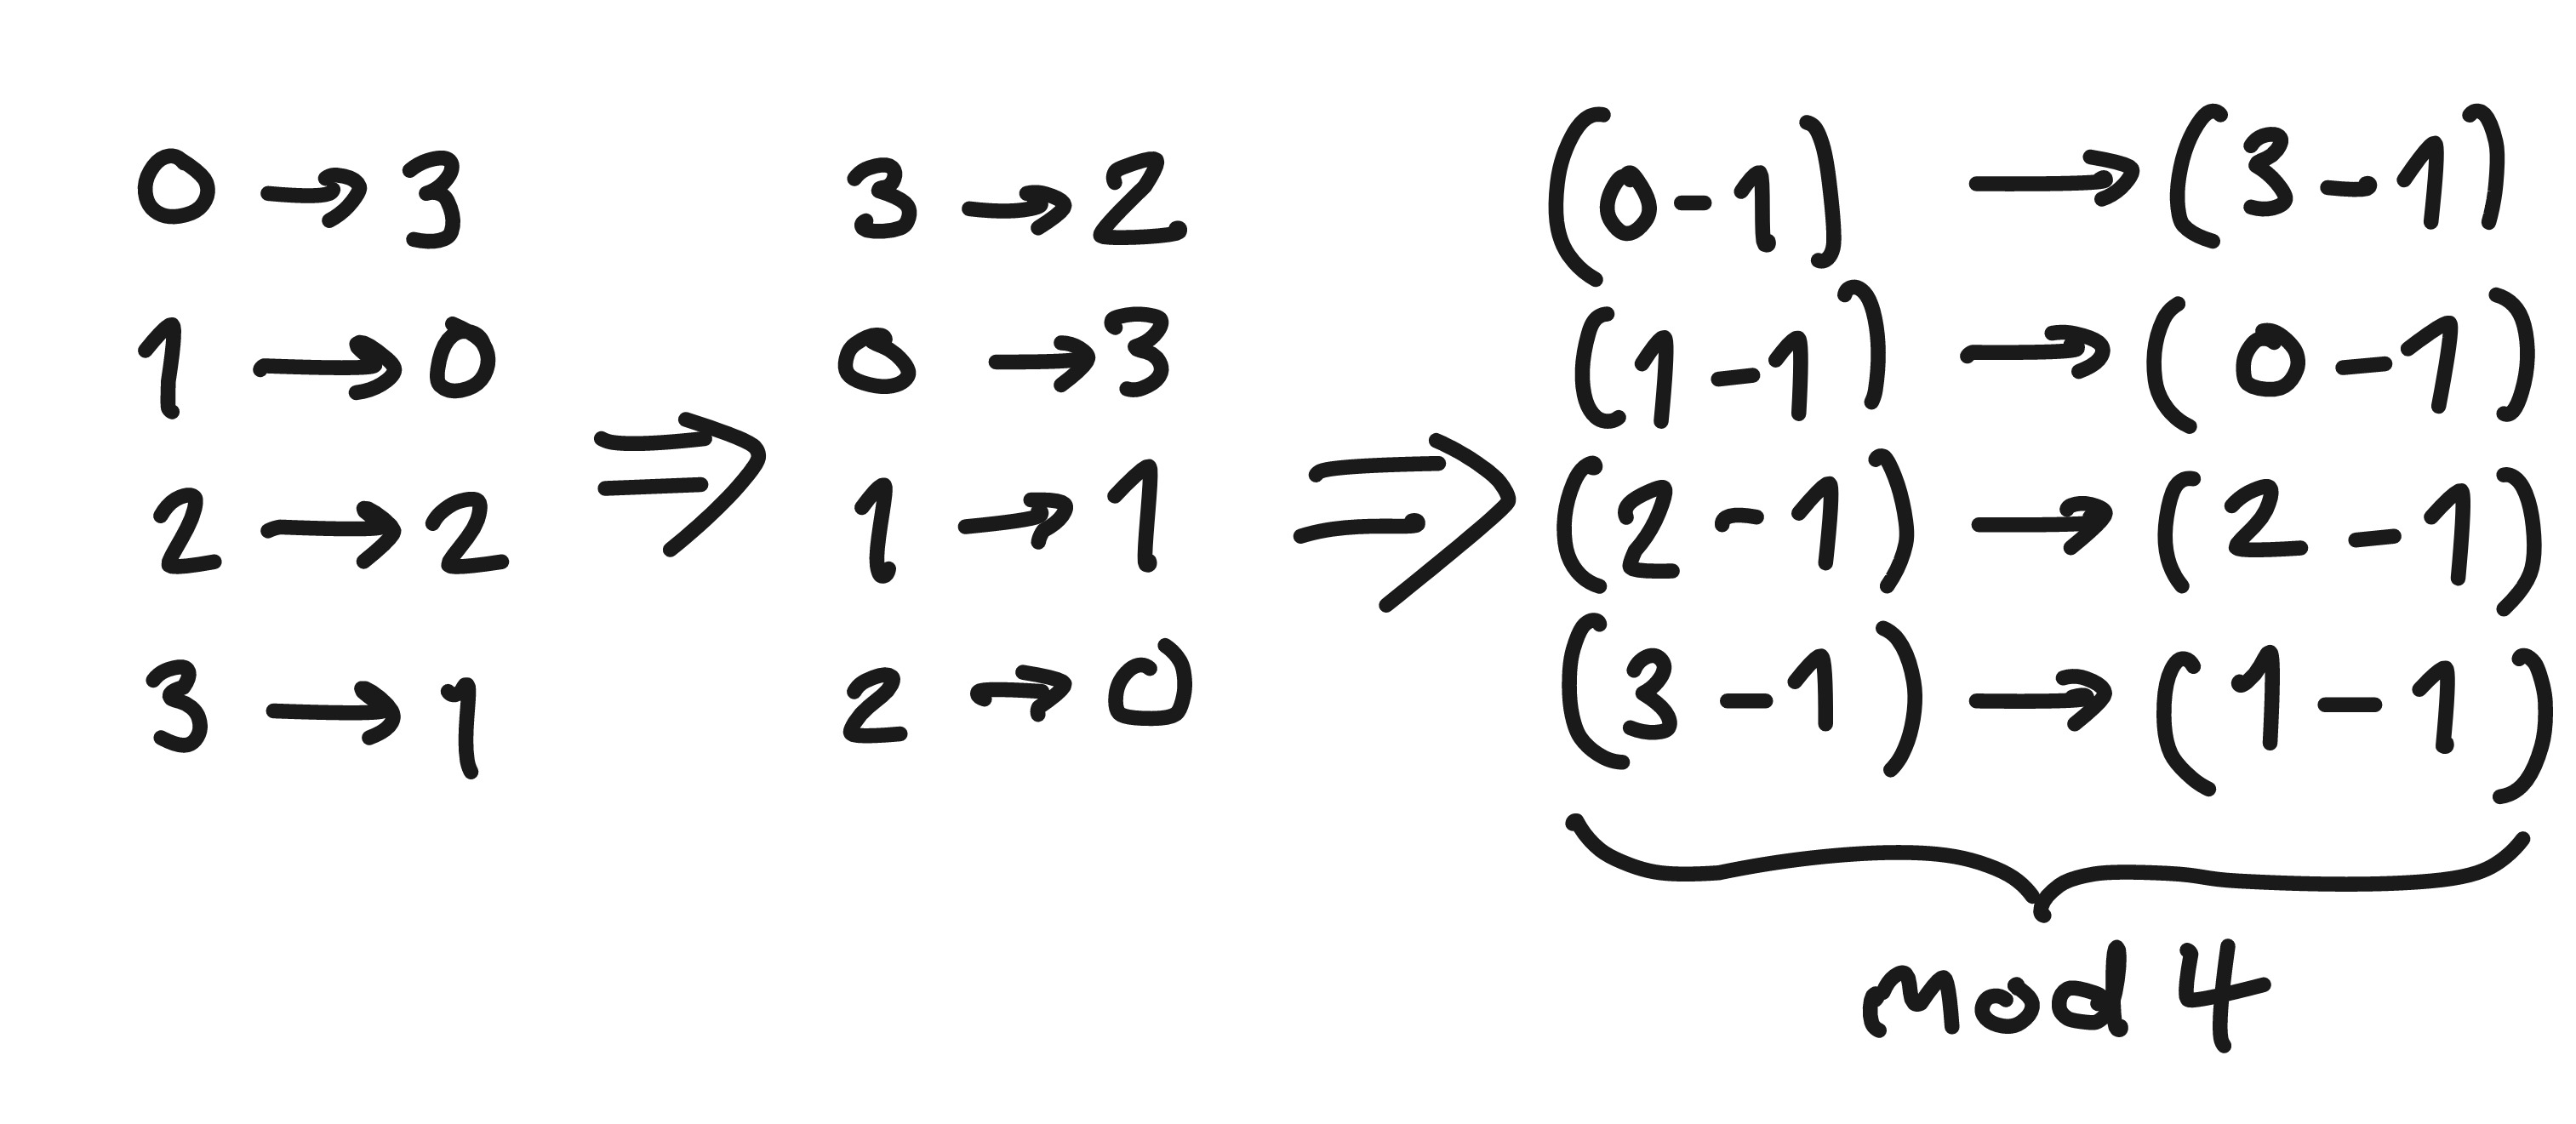 0 → 3
1 → 0
2 → 2
3 → 1
⇒
3 → 2
0 → 3
1 → 1
2 → 0
⇒
(0-1) → (3-1)
(1-1) → (0-1)
(2-1) → (2-1)
(3-1) → (1-1)
mod 4